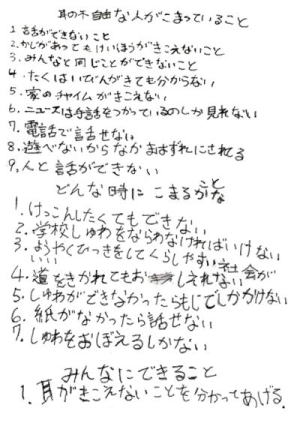 耳の不自由な人がこまっていること
1 言話ができないこと
2.かじがあってもけいほうがきこえないこと
3.みんなと同じことができないこと
4.たくはいびんがきても分からない
5.家のチャイムがきこえない
6.ニュースは手話をつかっているのしか見れない
7.電話で話せない
8.遊べないからなかまはずれにされてる
9.人と話ができない
どんな時にこまることかな
1.けっこんしたくてもできない
2.学校しゅわをならわなければいけない
3.ようやくひっきをしてくらしやすい社会が
いい
4.道をきかれてもおしえれない
5.しゅわができなかったらもじでしかかけない
6.紙がなかったら話せない
7.しゅわをおぼえるしかない
みんなにできること
1.耳がきこえないことを分かってあげる.